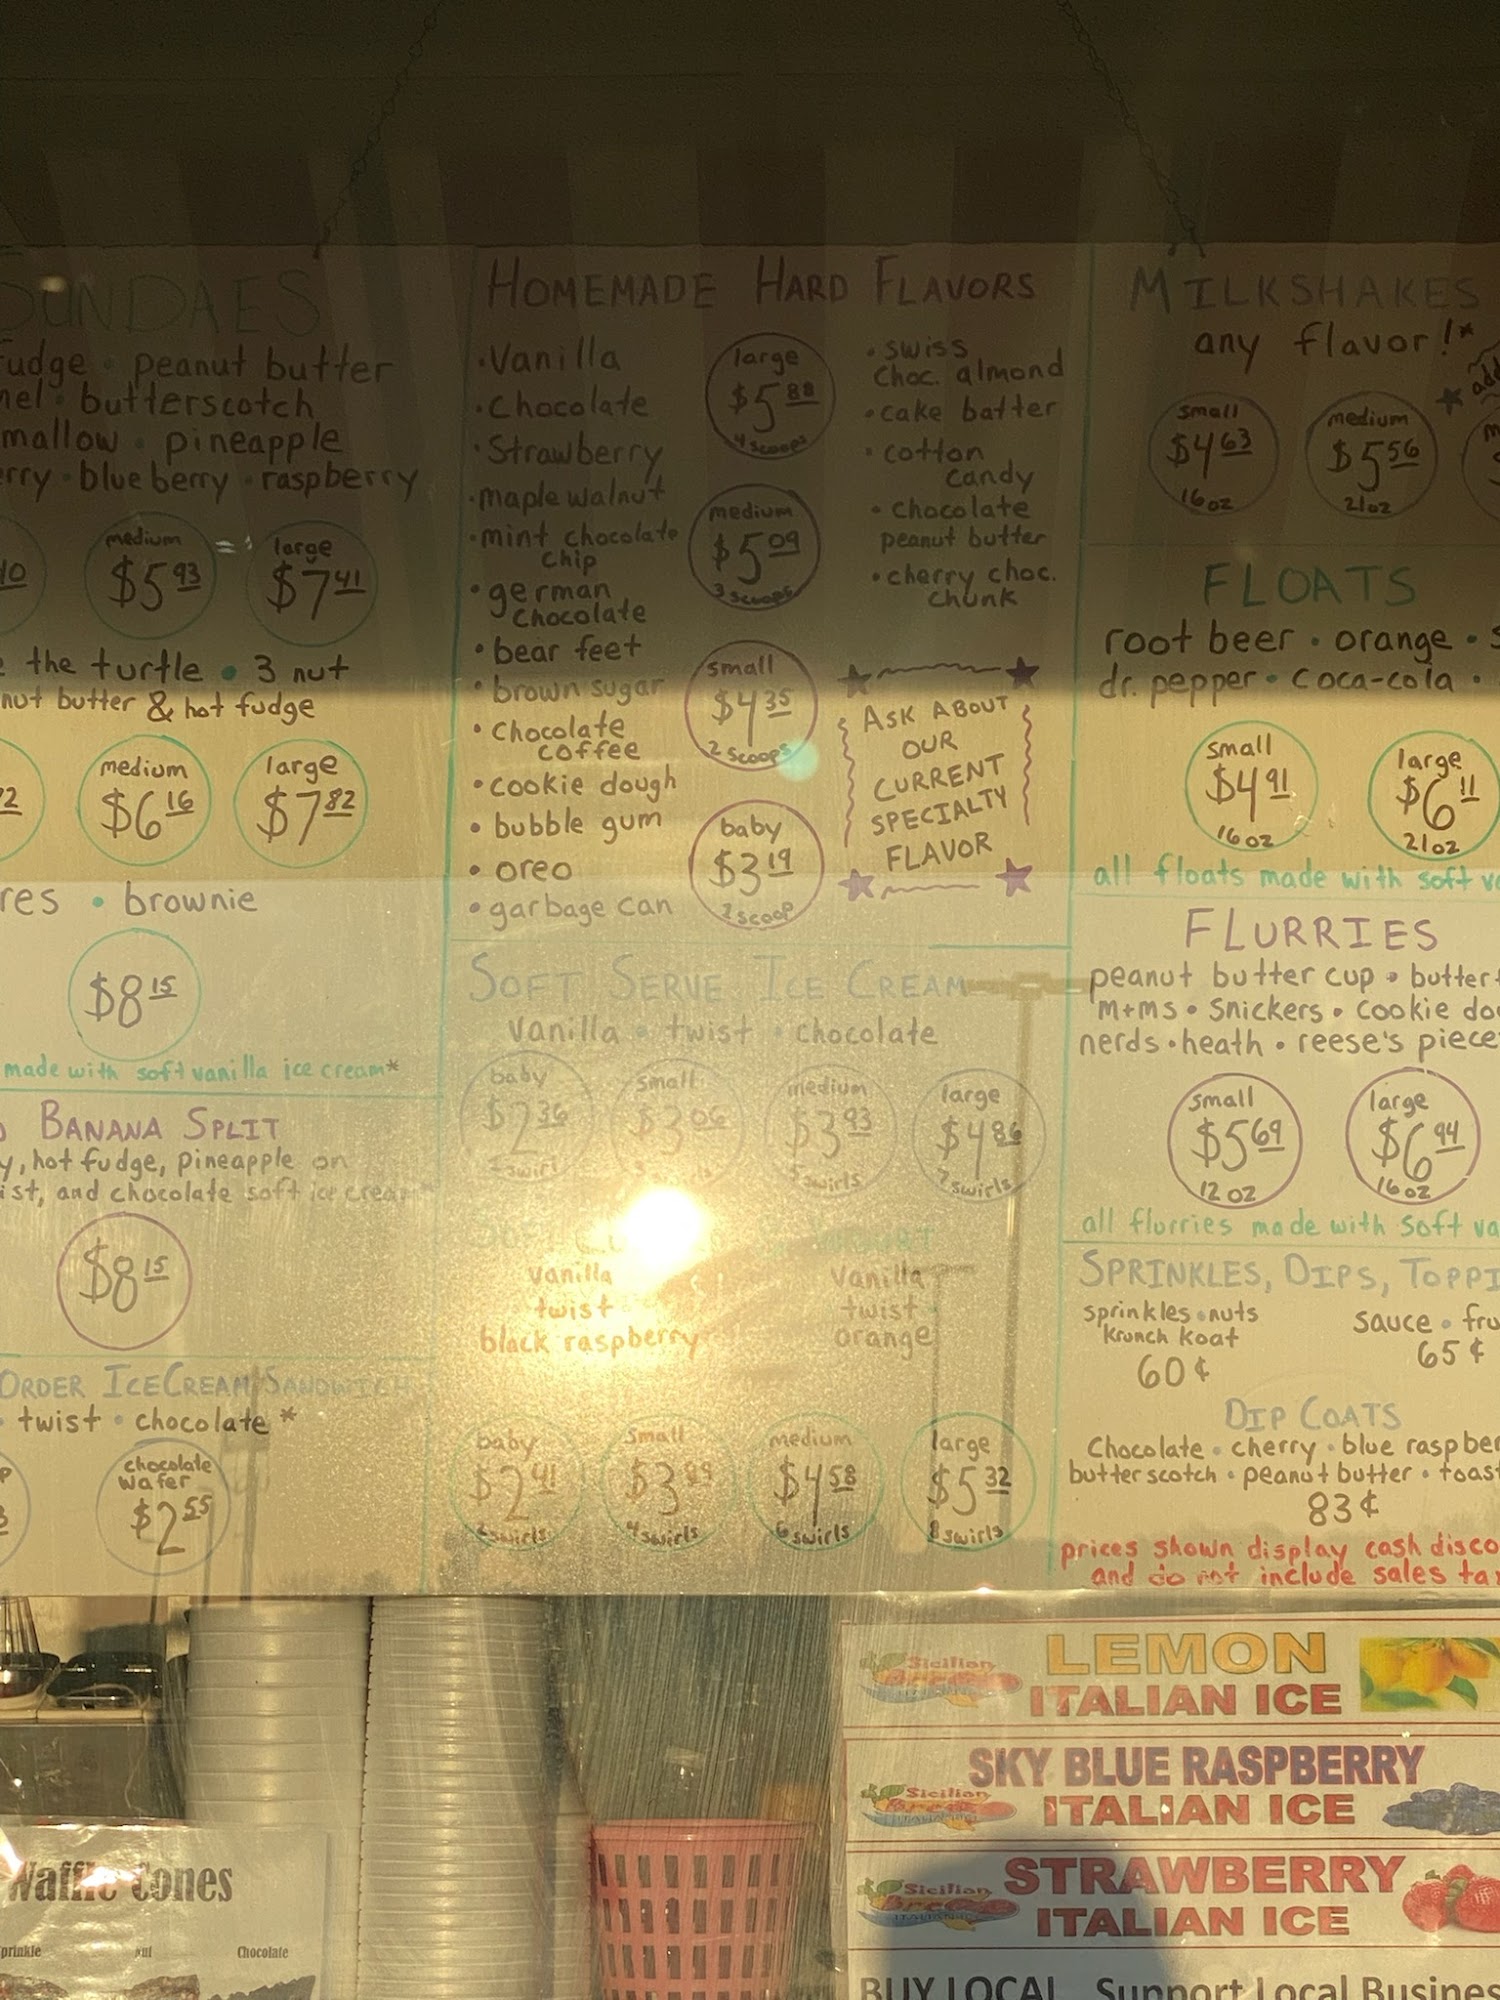 SUNDAES
fudge • peanut butter
mel • butterscotch
mallow • pineapple
erry • blueberry • raspberry
medium
$5.93
large
$7.41
the turtle • 3 nut
nut butter & hot fudge
medium
$6.16
large
$7.82
res • brownie
$8.15
made with soft vanilla ice cream*
BANANA SPLIT
y, hot fudge, pineapple on
ist, and chocolate soft ice cream
$8.15
ORDER ICE CREAM SANDWICH
• twist • chocolate *
chocolate
wafer
$2.55
HOMEMADE HARD FLAVORS
• Vanilla
• Chocolate
• Strawberry
• maple walnut
• mint chocolate
chip
• german
Chocolate
• bear feet
• brown sugar
• chocolate
coffee
• cookie dough
• bubble gum
• oreo
• garbage can
large
$5.88
4 scoops
medium
$5.09
3 scoops
small
$4.35
2 scoops
baby
$3.19
1 scoop
• swiss
choc. almond
• cake batter
• cotton
candy
• chocolate
peanut butter
• cherry choc.
chunk
ASK ABOUT
OUR
CURRENT
SPECIALTY
FLAVOR
SOFT SERVE ICE CREAM
vanilla • twist • chocolate
baby
$2.36
swirl
small
$3.06
swirls
medium
$3.93
swirls
large
$4.86
7 swirls
vanilla
twist
black raspberry
vanilla
twist
orange
baby
$2.41
2 swirls
small
4 swirls
medium
$4.58
6 swirls
large
$5.32
8 swirls
MILKSHAKES
any flavor!*
small
$4.63
16 oz
medium
$5.56
21 oz
FLOATS
root beer • orange •
dr. pepper • coca-cola •
small
$4.91
16 oz
large
$6.11
21 oz
all floats made with soft va
FLURRIES
peanut butter cup • butterf
m+ms • snickers • cookie do
nerds • heath • reese's piece
small
$5.69
12 oz
large
$6.94
16 oz
all flurries made with soft va
SPRINKLES, DIPS, TOPPI
sprinkles • nuts
krunch koat
60¢
sauce • fru
65¢
DIP COATS
Chocolate • cherry • blue raspber
butterscotch • peanut butter • toast
83¢
prices shown display cash disco
and do not include sales tax
Waffle Cones
prinkle
nut
Chocolate
Sicilian
Breeze
LEMON
ITALIAN ICE
Sicilian
Breeze
SKY BLUE RASPBERRY
ITALIAN ICE
Sicilian
Breeze
STRAWBERRY
ITALIAN ICE
BUY LOCAL Support Local Busines